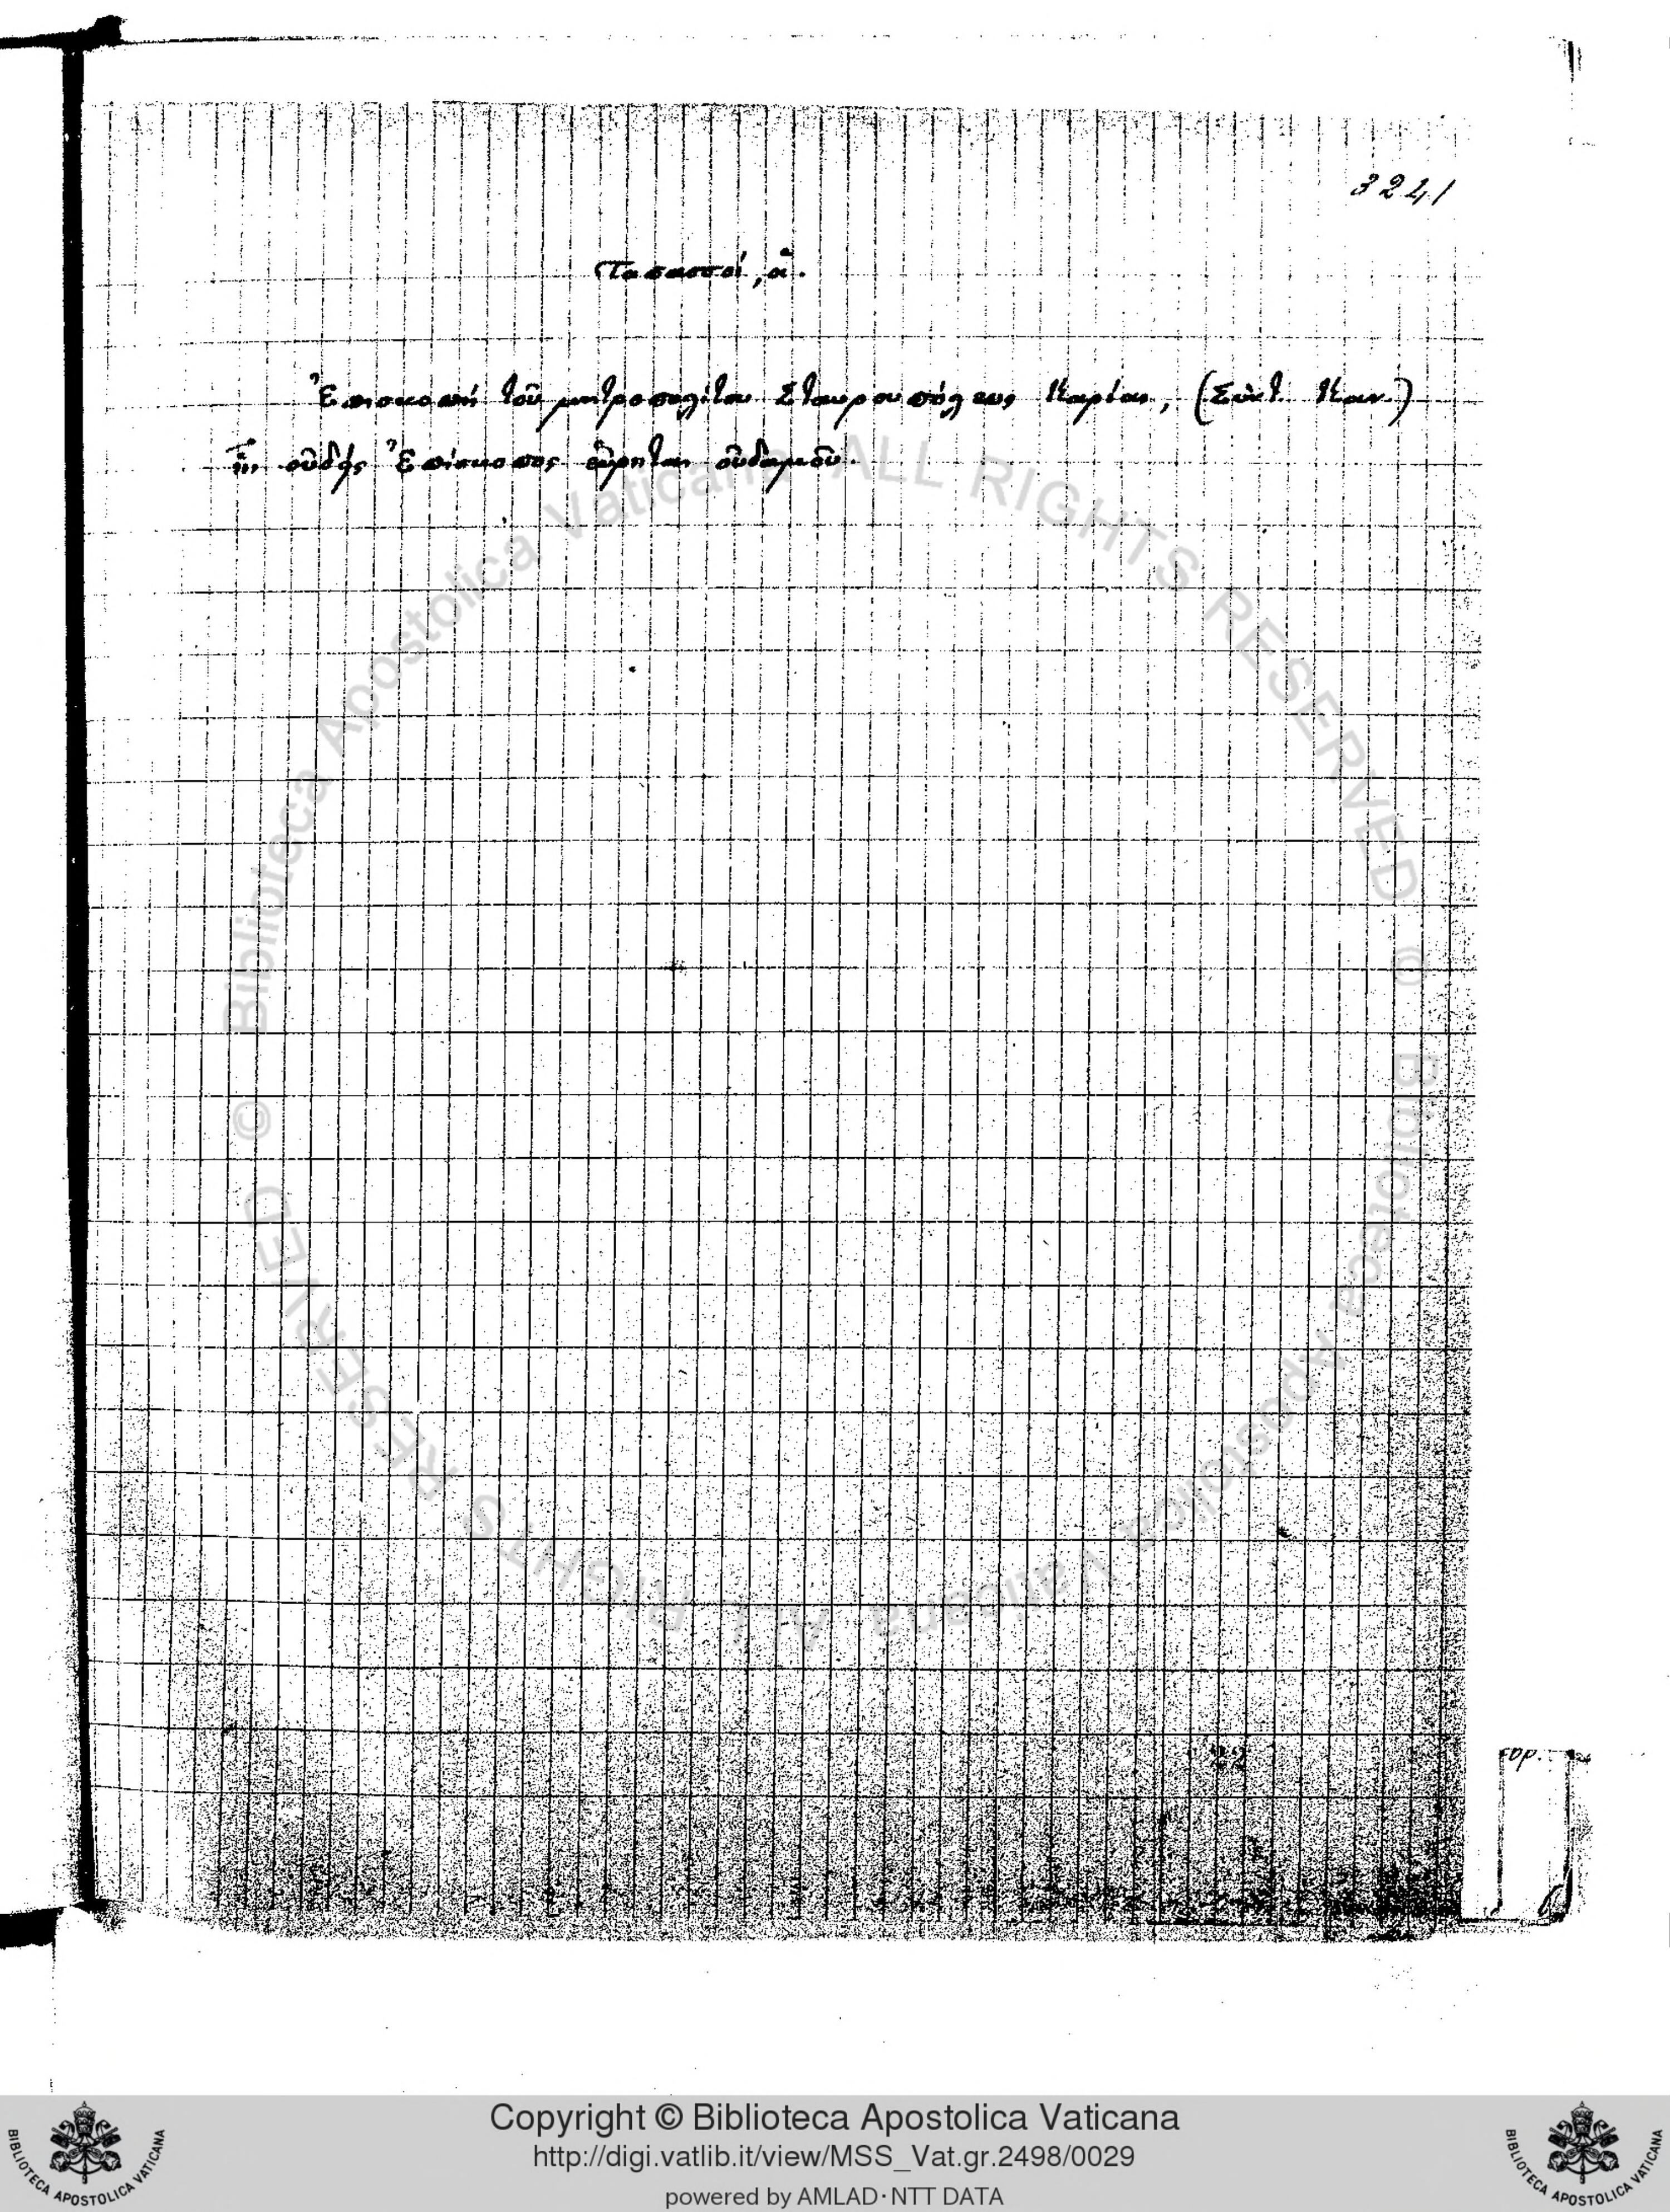 3241
Ταπασσοί, α.
Ἐπισκοπή τοῦ μητροπολίτου Σταυρουπόλεως Καρίας, (Σύντ. Καν.)
ἧς οὐδείς Ἐπίσκοπος εὕρηται οὐδαμοῦ.
© Biblioteca Apostolica Vaticana ALL RIGHTS RESERVED © Biblioteca Apostolica Vaticana ALL RIGHTS RESERVED
Copyright © Biblioteca Apostolica Vaticana
http://digi.vatlib.it/view/MSS_Vat.gr.2498/0029
powered by AMLAD·NTT DATA
BIBLIOTECA APOSTOLICA VATICANA
BIBLIOTECA APOSTOLICA VATICANA